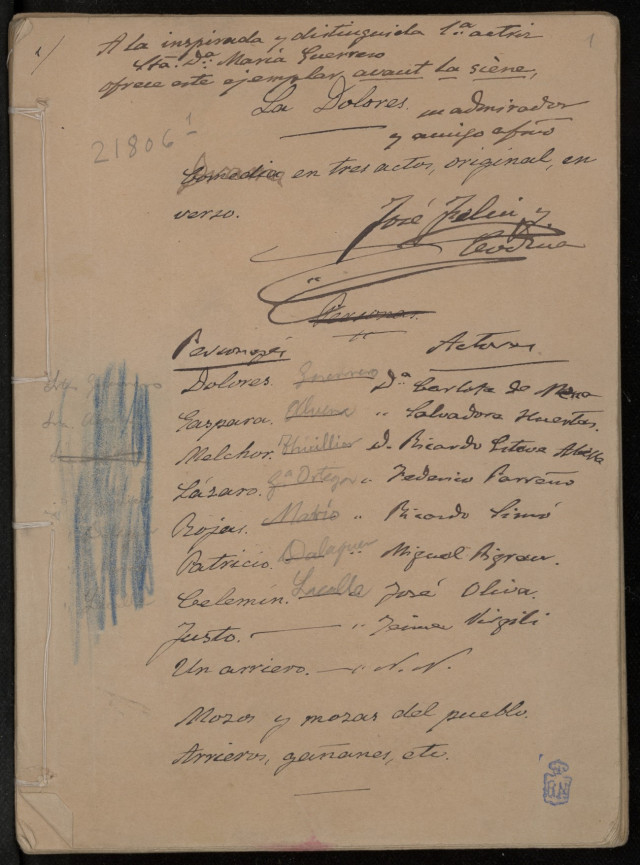 1
A la inspirada y distinguida 1.ª actriz
Srta. Dª María Guerrero
ofrece este ejemplar, avant la scène,
La Dolores. su admirador
y amigo afmo
21806¹
Comedia en tres actos, original, en
verso.
José Feliu y
Codina
Personas.
Personajes Actores.
Dolores. Guerrero Dª Carlota de Mena
Gaspara. " Salvadora Huertas.
Melchor. Thuillier D. Ricardo Esteva
Lázaro. Gª Ortega " Federico Parreño
Rojas. Mario " Ricardo Simó
Patricio. Balaguer " Miguel Pigrau.
Celemín. Lacalle José Oliva.
Justo. " Jaime Virgili
Un arriero. — N. N.
Mozos y mozas del pueblo.
Arrieros, gañanes, etc.
BN